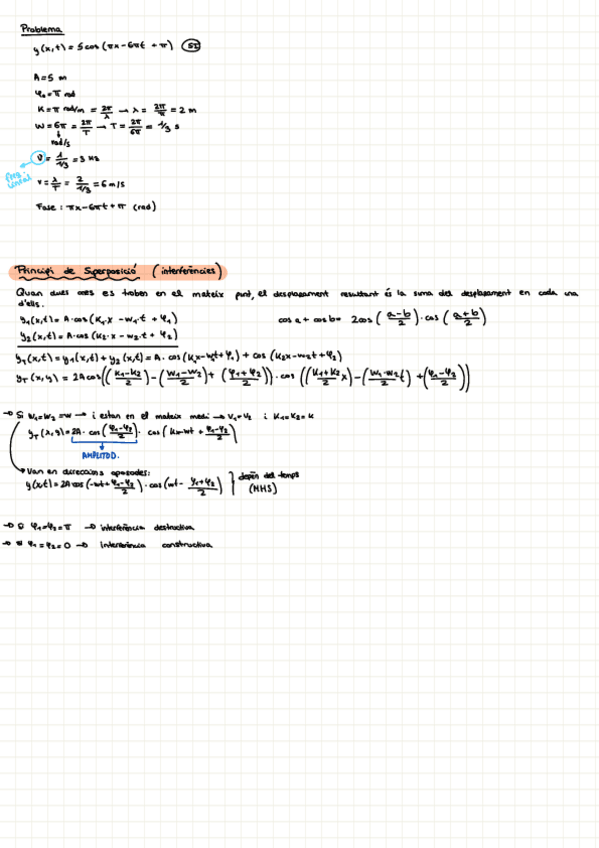 Problema
y(x,t) = 5cos(πx-6πt +π) (SI)
A=5 m
φ₀=π rad
K=π rad/m = 2π/λ → λ = 2π/π = 2 m
W=6π = 2π/T → T= 2π/6π = 1/3 s
rad/s
ν = 1/1/3 = 3 Hz
freq. lineal
v = λ/T = 2/1/3 = 6 m/s
Fase: πx-6πt+π (rad)
Principi de Superposició (interferències)
Quan dues ones es troben en el mateix punt, el desplaçament resultant és la suma del desplaçament en cada una
d'elles.
y₁(x,t) = A·cos(K₁·x -w₁·t + φ₁)
cos a + cos b = 2cos(a-b/2)·cos(a+b/2)
y₂(x,t) = A·cos(K₂·x -w₂·t + φ₂)
y_T(x,t) = y₁(x,t) + y₂(x,t) = A· cos(K₁x-w₁t+φ₁) + cos(K₂x-w₂t+φ₂)
y_T(x,y) = 2Acos((K₁-K₂/2)-(W₁-W₂/2)+(φ₁+φ₂/2))·cos((K₁+K₂/2 x)-(W₁-W₂/2 t)+(φ₁-φ₂/2))
→ Si W₁=W₂=W → i estan en el mateix medi → V₁=V₂ i K₁=K₂=K
y_T(x,y) = 2A· cos(φ₁-φ₂/2)· cos(Kx-wt + φ₁-φ₂/2)
AMPLITUD.
Van en direccions oposades:
y(x,t) = 2A cos(-wt+φ₁-φ₂/2)·cos(wt- φ₁+φ₂/2) } depèn del temps
(MHS)
→ Si φ₁=φ₂=π → interferència destructiva
→ si φ₁=φ₂=0 → interferència constructiva